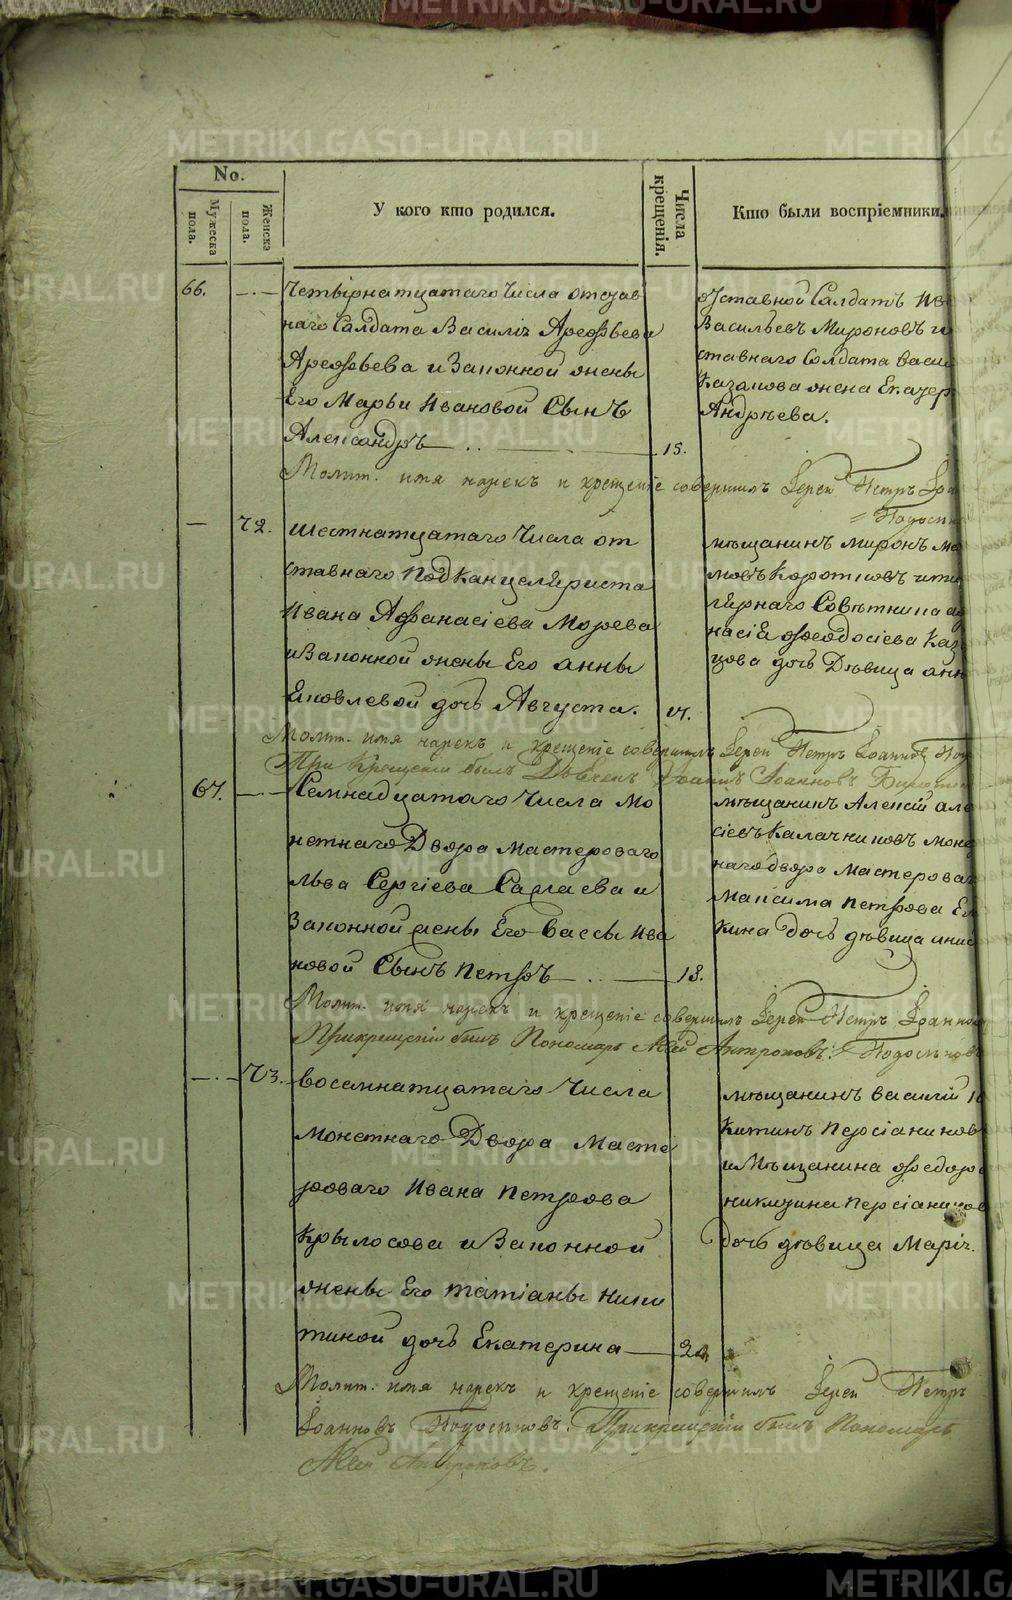 METRIKI.GASO-URAL.RU
No.
Мужеска пола.
Женска пола.
У кого кто родился.
Числа крещенія.
Кто были воспріемники.
66. — Четвірнатцатаго Числа отстав
наго Салдата Василія Арефьева
Арефьева и Законной жены
Его Марьи Ивановой Сынъ
Александръ — 15.
отставной Салдатъ Ив
Васильевъ Мироновъ и
ставнаго Солдата Васи
Казакова жена Екатер
Андрѣева.
Молит. имя нарекъ и крещеніе совершилъ Іерей Петръ Іоа
— 72. шестнатцатаго Числа от
ставнаго Подканцеляриста
Ивана Афанасіева Морева
и Законной жены Его анны
Яковлевой дочь Августа. 17.
мѣщанинъ Миронъ
мовъ Коротковъ и ти
лярнаго Совѣтника а
насія Феодосіева Каз
цова дочь Дѣвица анн
Молит. имя нарекъ и крещеніе совершилъ Іерей Петръ Іоаннов
При крещеніи былъ Дьячекъ Іоаннъ Іоанновъ
67. — Семнадцатаго Числа Мо
нетнаго Двора Мастероваго
Льва Сергіева и
Законной жены Его Вассы Ива
новой Сынъ Петръ — 18.
мѣщанинъ Алексій але
сіевъ Калачниковъ моне
наго двора мастероваг
Максима Петрова Ел
кина дочь дѣвица
Молит. имя нарекъ и крещеніе совершилъ Іерей Петръ Іоаннов
Прикрещеніи былъ Пономарь Антроповъ.
— 73. восемнатцатаго Числа
монетнаго Двора Масте
роваго Ивана Петрова
Крылосова и Законной
жены Его татіаны Ники
тиной дочь Екатерина —
мѣщанинъ василій Н
китинъ Персіаниновъ
и Мѣщанина Федора
никитина Персіанинов
дочь дѣвица Марія.
Молит. имя нарекъ и крещеніе совершилъ Іерей Петръ
Іоанновъ Подосеновъ. Прикрещеніи былъ Пономарь
Антроповъ.